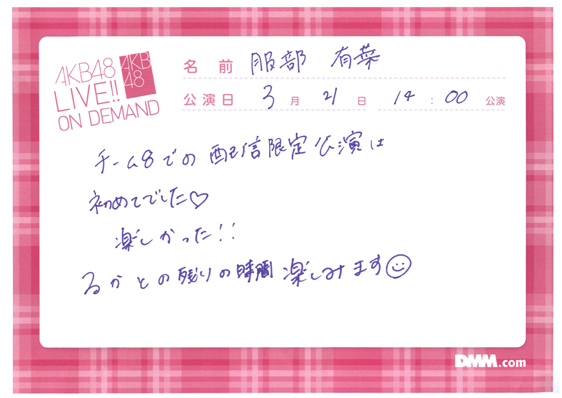 AKB48
LIVE!!
ON DEMAND
AKB
48
名前 服部 有菜
公演日 3月21日 14:00公演
チーム8での配信限定公演は
初めてでした♡
楽しかった!!
るかとの残りの時間楽しみます☺
DMM.com